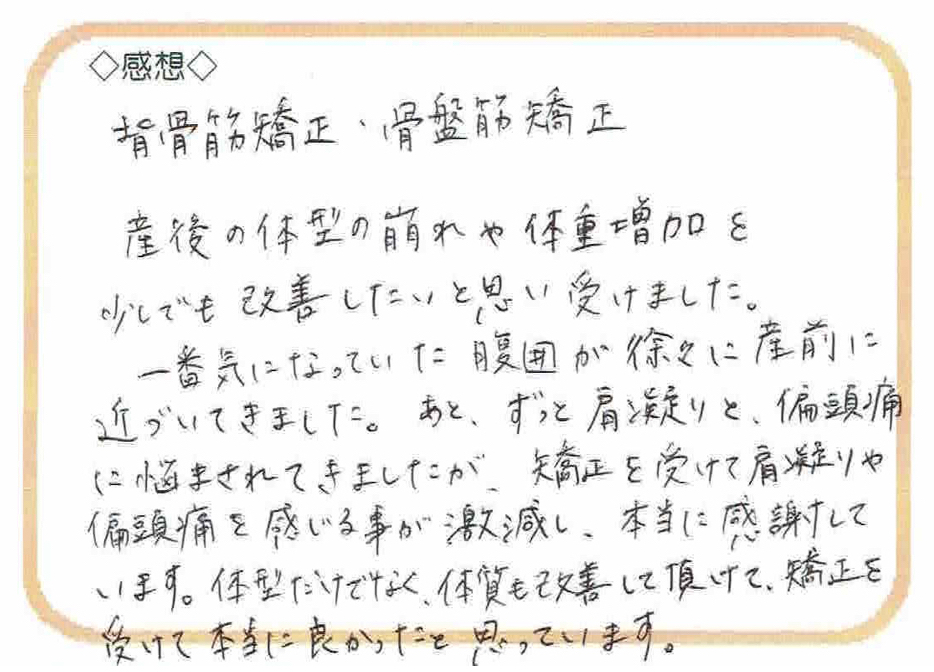 ◇感想◇
背骨筋矯正・骨盤筋矯正
産後の体型の崩れや体重増加を
少しでも改善したいと思い受けました。
一番気になっていた腹囲が徐々に産前に
近づいてきました。あと、ずっと肩凝りと、偏頭痛
に悩まされてきましたが、矯正を受けて肩凝りや
偏頭痛を感じる事が激減し、本当に感謝して
います。体型だけでなく、体質も改善して頂けて、矯正を
受けて本当に良かったと思っています。